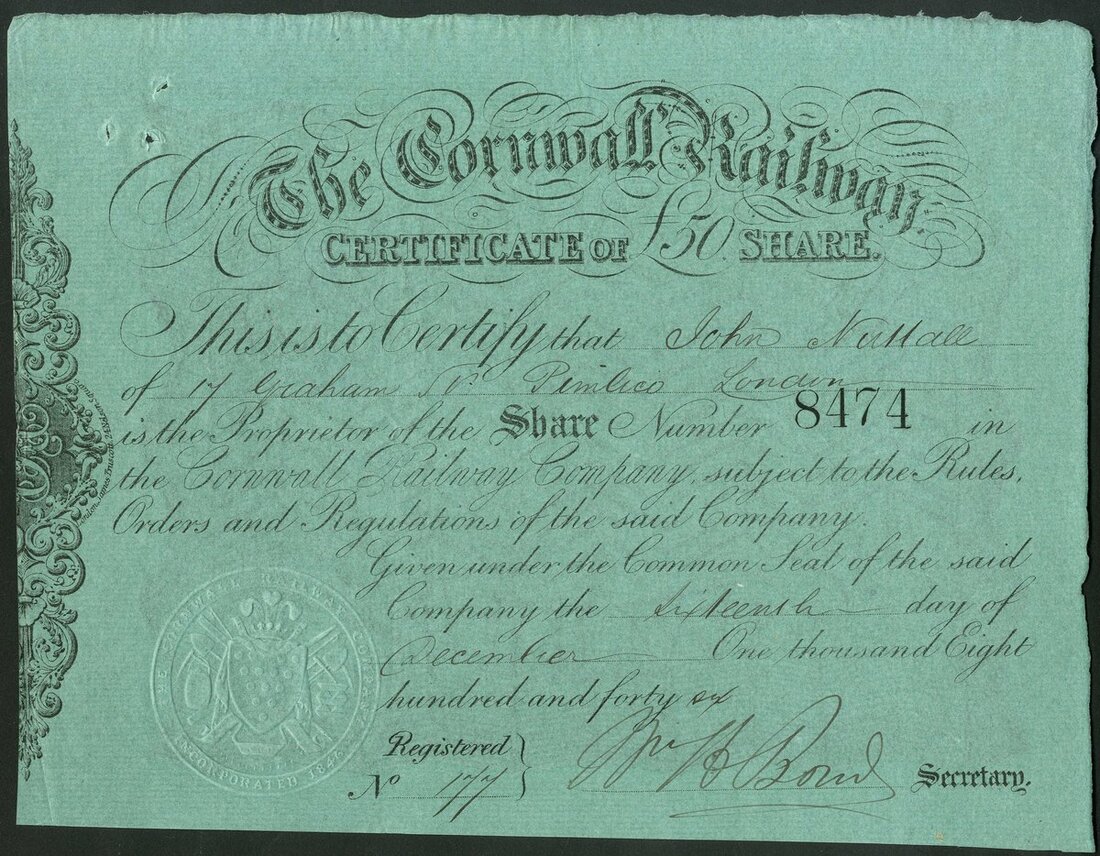 The Cornwall Railway.
CERTIFICATE OF £50 SHARE.
This is to Certify that John Nuttall
of 17 Graham St Pimlico London
is the Proprietor of the Share Number 8474 in
the Cornwall Railway Company, subject to the Rules,
Orders and Regulations of the said Company.
Given under the Common Seal of the said
Company the Sixteenth day of
December One thousand Eight
hundred and forty six
Registered
No 177
Wm H Bond Secretary.
THE CORNWALL RAILWAY COMPANY
INCORPORATED 1846